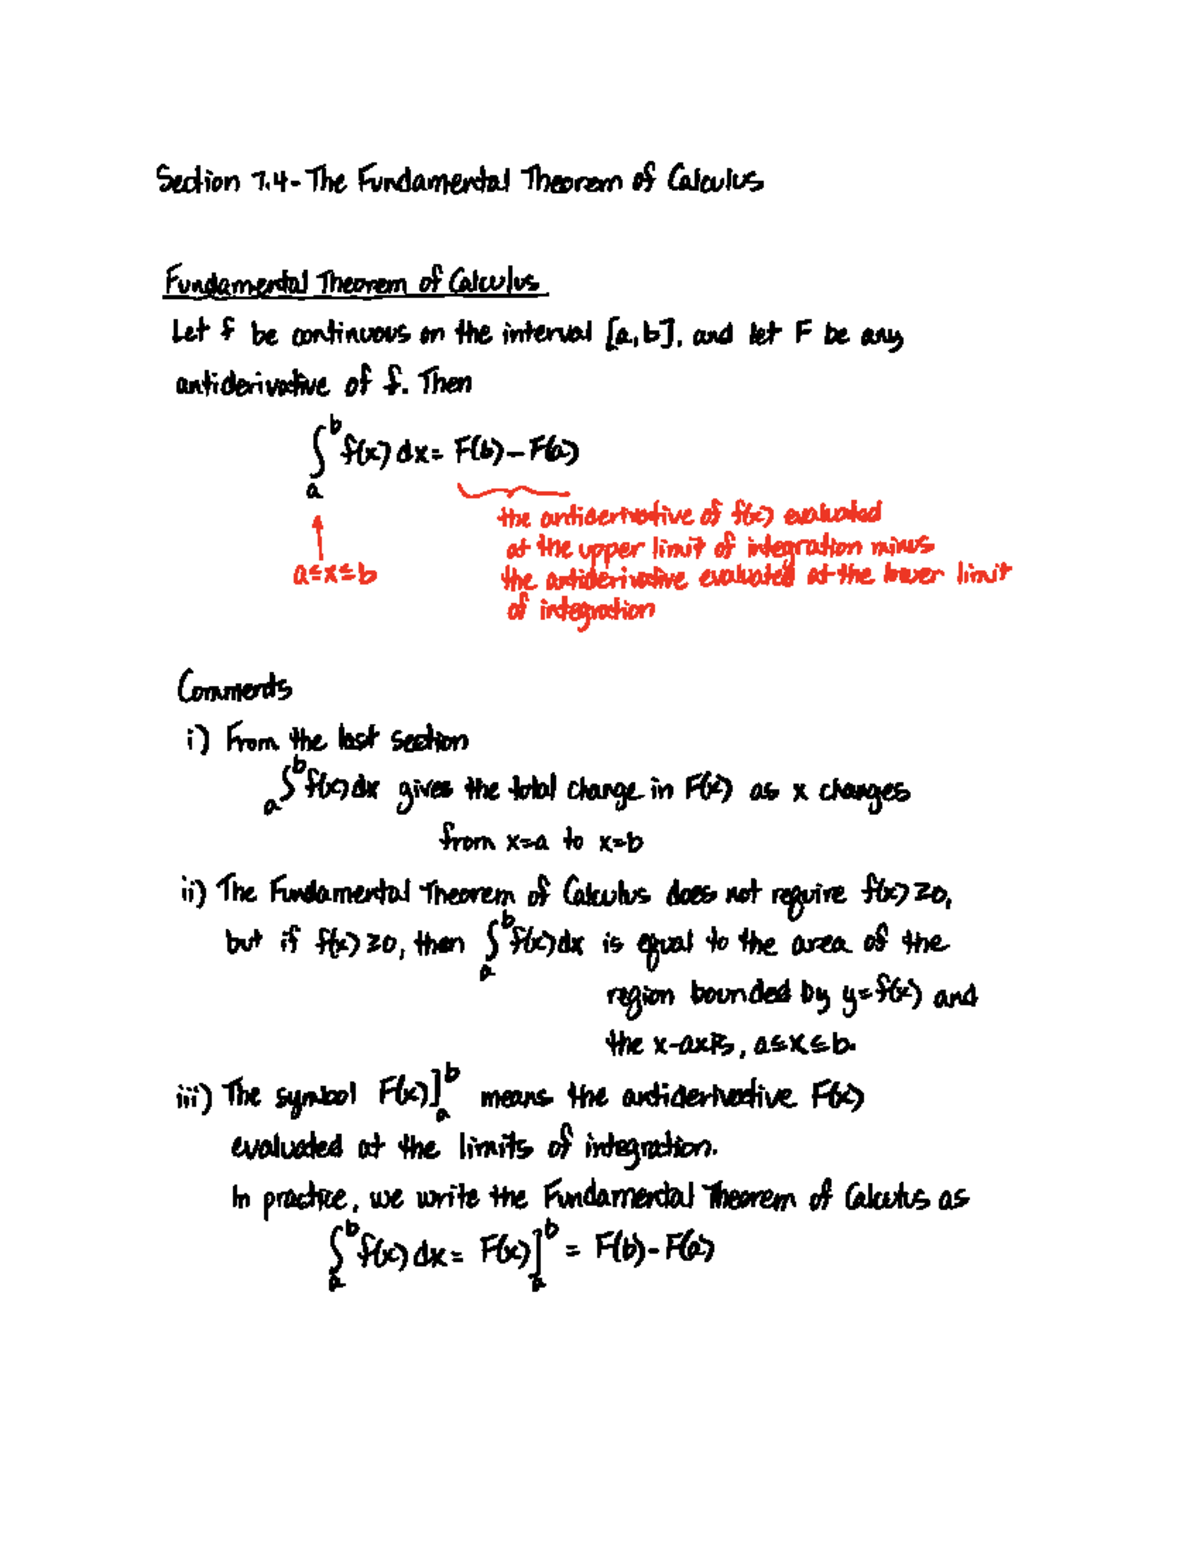 Section 7.4 - The Fundamental Theorem of Calculus
Fundamental Theorem of Calculus
Let f be continuous on the interval [a,b], and let F be any
antiderivative of f. Then
∫_a^b f(x) dx = F(b) - F(a)
a≤x≤b
the antiderivative of f(x) evaluated
at the upper limit of integration minus
the antiderivative evaluated at the lower limit
of integration
Comments
i) From the last section
∫_a^b f(x) dx gives the total change in F(x) as x changes
from x=a to x=b
ii) The Fundamental Theorem of Calculus does not require f(x) ≥0,
but if f(x) ≥0, then ∫_a^b f(x) dx is equal to the area of the
region bounded by y=f(x) and
the x-axis, a≤x≤b.
iii) The symbol F(x)]_a^b means the antiderivative F(x)
evaluated at the limits of integration.
In practice, we write the Fundamental Theorem of Calculus as
∫_a^b f(x) dx = F(x)]_a^b = F(b) - F(a)